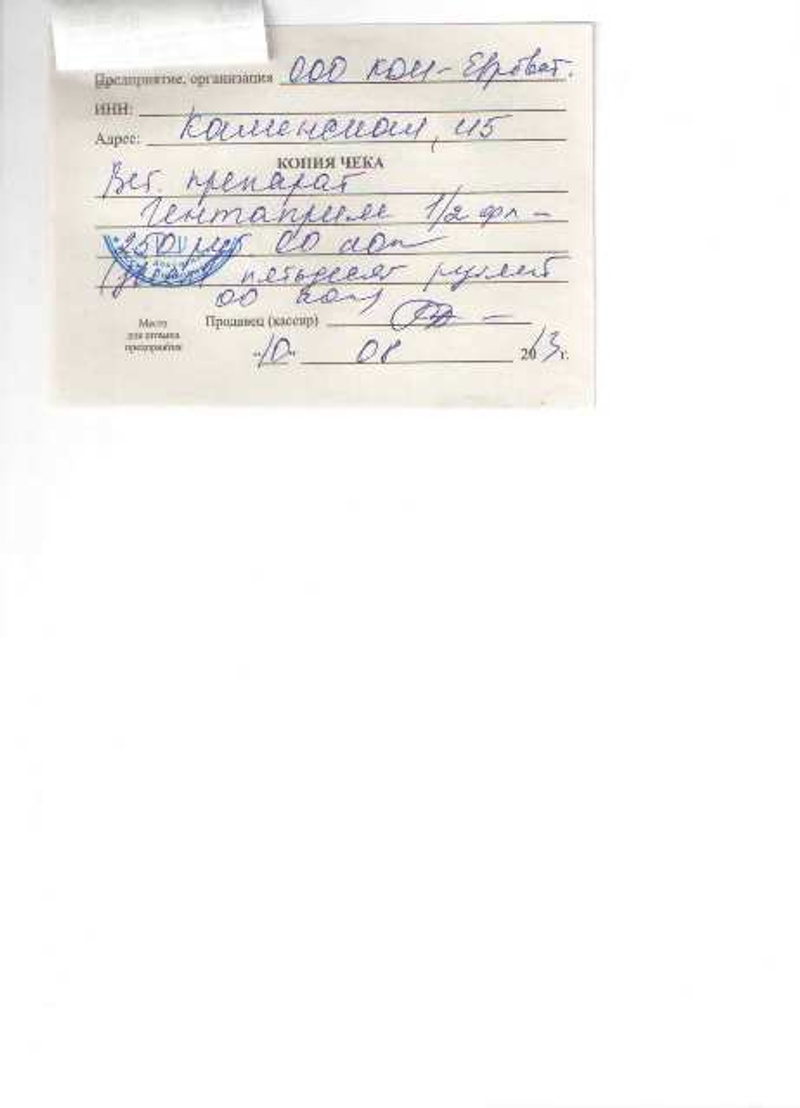 Предприятие, организация ООО КОМ-
ИНН:
Адрес: Каменская, 45
КОПИЯ ЧЕКА
Вет. препарат
Гентаприм 1/2 фл -
250 00 коп
пятьдесят рублей
00 коп
Место
для штампа
предприятия
Продавец (кассир)
"10" 08 2013г.